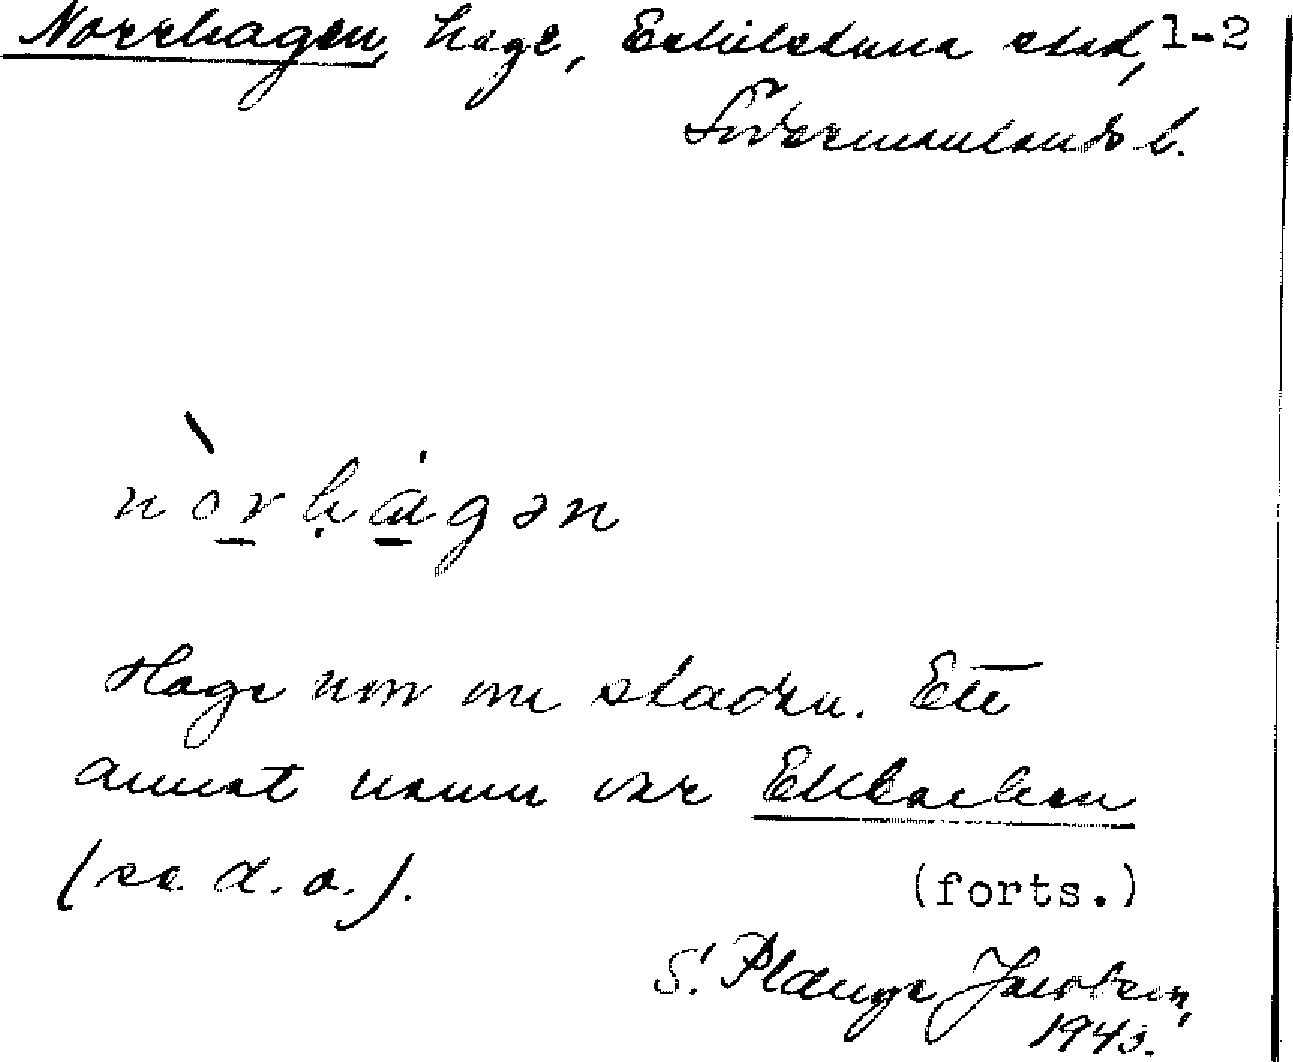 Norrhagen, hage, Eskilstuna stad, 1-2
Södermanlands l.
nòrhágən
Hage norr om staden. Ett
annat namn var Ekbacken
(se d. o.).
(forts.)
S. Plange Jacobson,
1943.